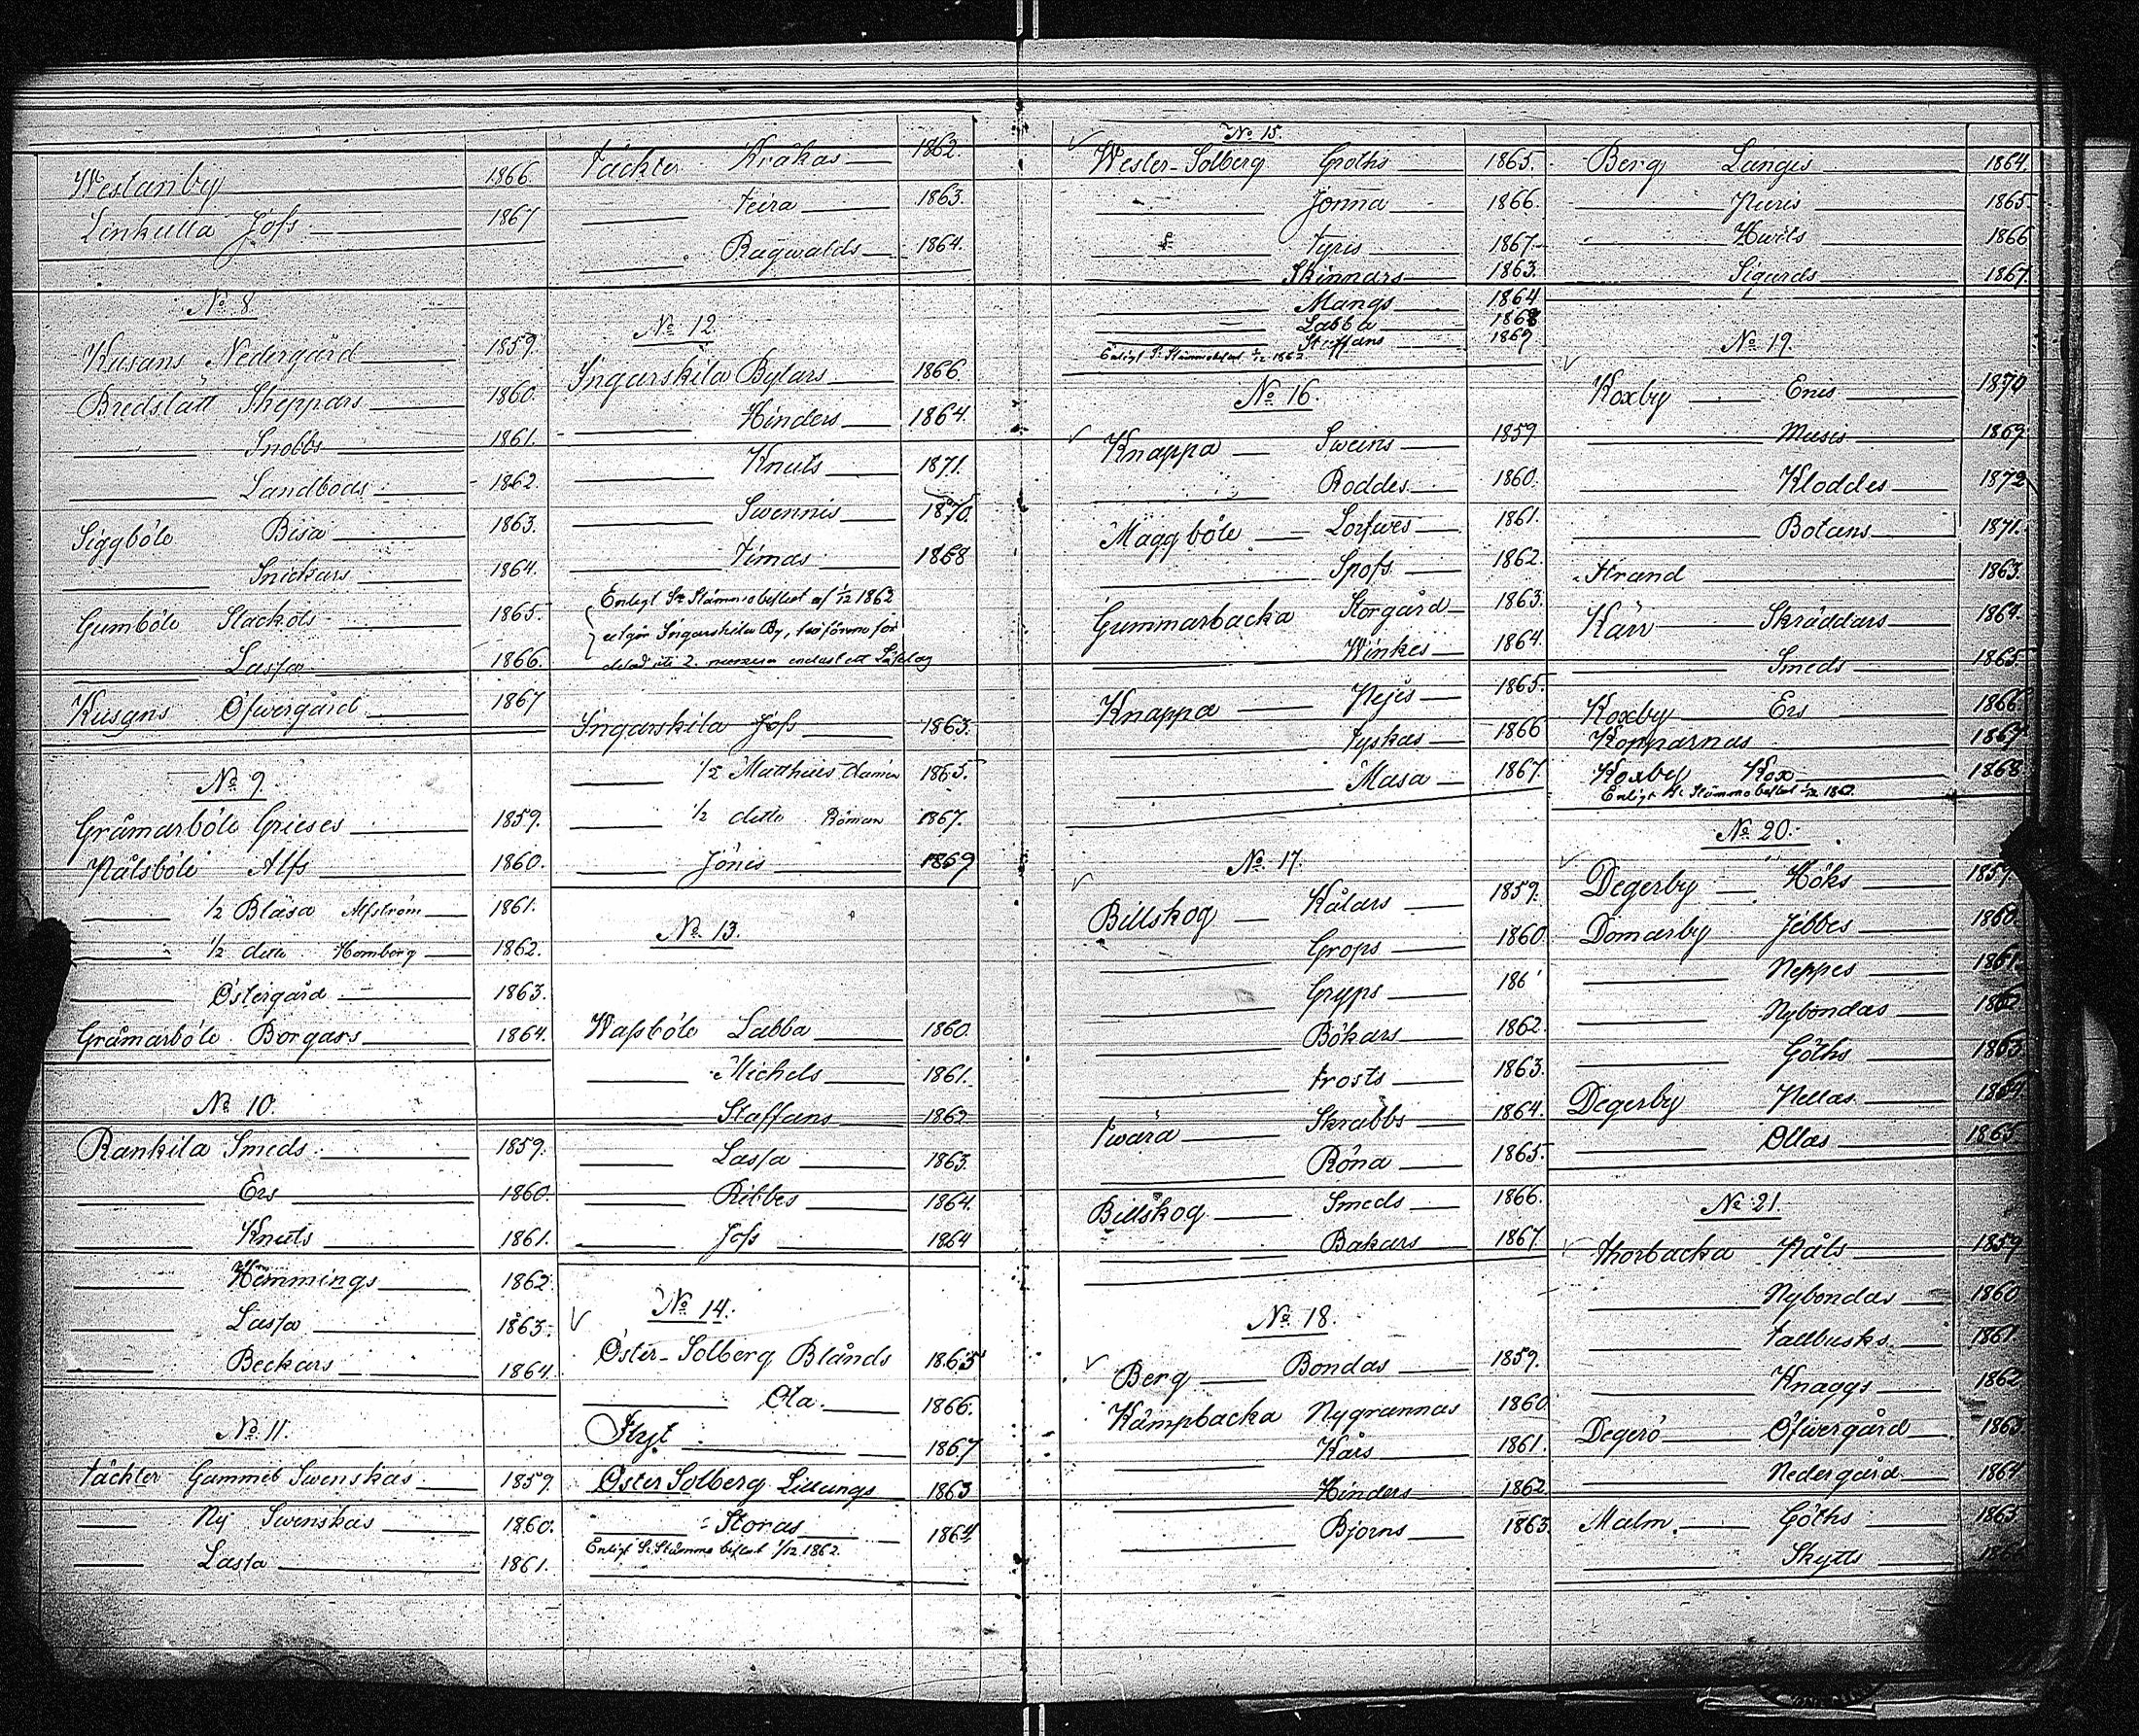 Westanby 1866.
Linkulla Jofs 1867
No 8.
Kusans Nedergård 1859.
Bredslätt Sheppars 1860.
Snobbs 1861.
Landbods 1862.
Siggböle Bisa 1863.
Snickars 1864.
Gumböle Stackots 1865
Lassa 1866.
Kusans Öfwergård 1867
No 9.
Gråmarböle Grieses 1859.
Pålsböle Alfs 1860.
1/2 Blåsa Alfström 1861.
1/2 detto Homborg 1862.
Östergård 1863.
Gråmarböle Borgars 1864.
No 10.
Rankila Smeds 1859.
Ers 1860.
Knuts 1861.
Hemmings 1862.
Lassa 1863.
Beckars 1864.
No 11.
Täckter Gammel Swenskas 1859.
Ny Swenskas 1860.
Lassa 1861.
Täckter Kråkas 1862.
Teira 1863.
Ragwalds 1864.
No 12.
Ingarskila Bylars 1866.
Hinders 1864.
Knuts 1871.
Swennis 1870.
Timas 1868
Enligt Se Stämmobeslut af 1/12 1862
utgör Ingarskila By, för
delad uti 2. endast ett Läslag
Ingarskila Jofs 1863.
1/2 Matthies 1865.
1/2 detto Röman 1867.
Jönis 1869
No 13.
Wafsböle Labba 1860.
Michels 1861.
Staffans 1862.
Lassa 1863.
Ribbes 1864.
Jofs 1864
No 14.
Öster-Solberg Blånds 1865
Ola 1866.
Flyt 1867
Öster Solberg Lillungs 1863
Storas 1864.
Enligt Se Stämmo beslut 1/12 1862.
No 15.
Wester-Solberg Groths 1865.
Jonna 1866.
Tyris 1867.
Skinnars 1863.
Mangs 1864
Labba 1868
Staffans 1869
Enligt Se Stämmobeslut 1/12 1862.
No 16.
Knappa Sweins 1859
Roddes 1860.
Maggböle Lorfwes 1861.
Spofs 1862.
Gummarbacka Storgård 1863.
Winkes 1864.
Knappa Nejis 1865.
Tyskas 1866
Masa 1867.
No 17.
Billskog Kålars 1859.
Grops 1860.
Gryps 186
Bökars 1862.
Trosts 1863.
Twära Skrabbs 1864.
Röna 1865.
Billskog Smeds 1866.
Bakars 1867
No 18.
Berg Bondas 1859.
Kämpbacka Nygrannas 1860
Kårs 1861.
Hinders 1862
Bjorns 1863.
Berg Langis 1864.
Puris 1865
Hwits 1866
Sigurds 1867.
No 19.
Koxby Enis 1870
Musis 1869
Kloddes 1872
Botans 1871.
Strand 1863.
Kärr Skräddars 1864.
Smeds 1865.
Koxby Ers 1866.
Kopparnas 1867
Koxby Kox 1868
Enligt Se Stämmobeslut 1/12 1862.
No 20.
Degerby Höks 1859.
Domarby Jebbes 1860.
Neppes 1861.
Nybondas 1862
Göths 1863
Degerby Pellas 1864.
Ollas 1865.
No 21.
Thorbacka Påls 1859
Nybondas 1860
Tallbusks 1861.
Knaggs 1862
Degerö Öfwergård 1863
Nedergård 1864
Malm Göths 1865
Skytts